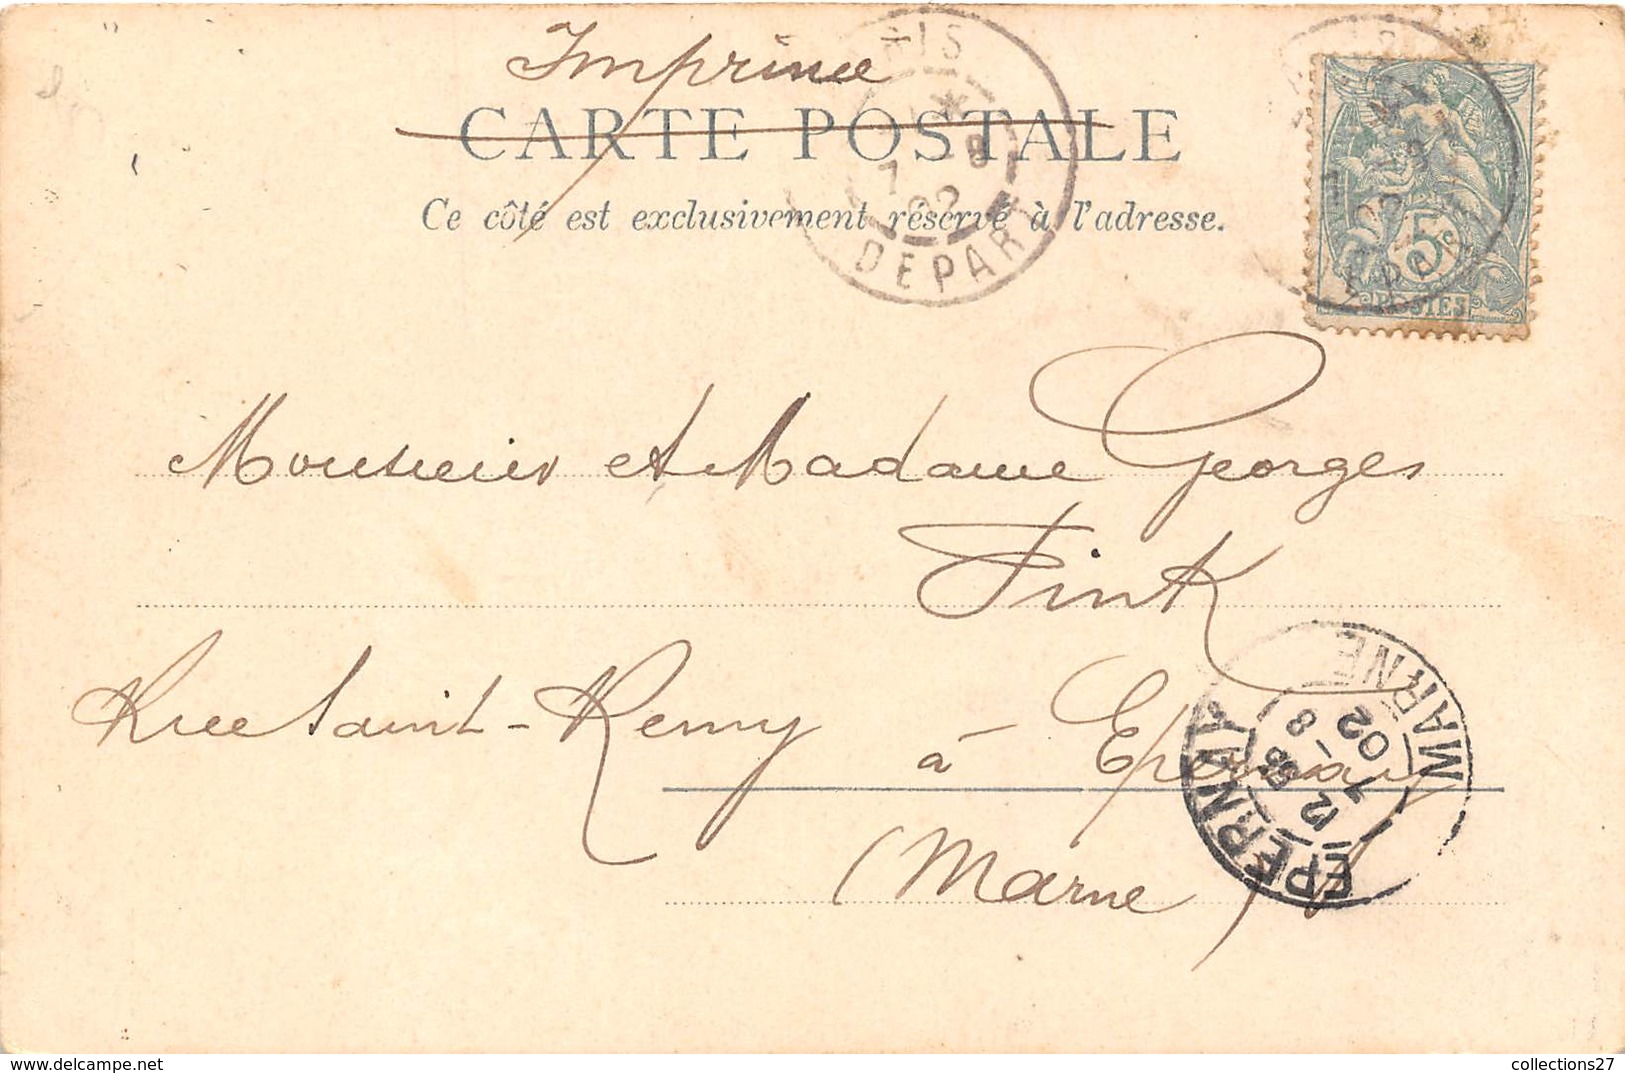 Imprimé
CARTE POSTALE
Ce côté est exclusivement réservé à l'adresse.
DEPART
7 - 8
02
5c
POSTES
Monsieur et Madame Georges
Fink
Rue Saint-Remy
à Epernay
(Marne)
EPERNAY
MARNE
12
8 - 7
02
delcampe.net
collections27